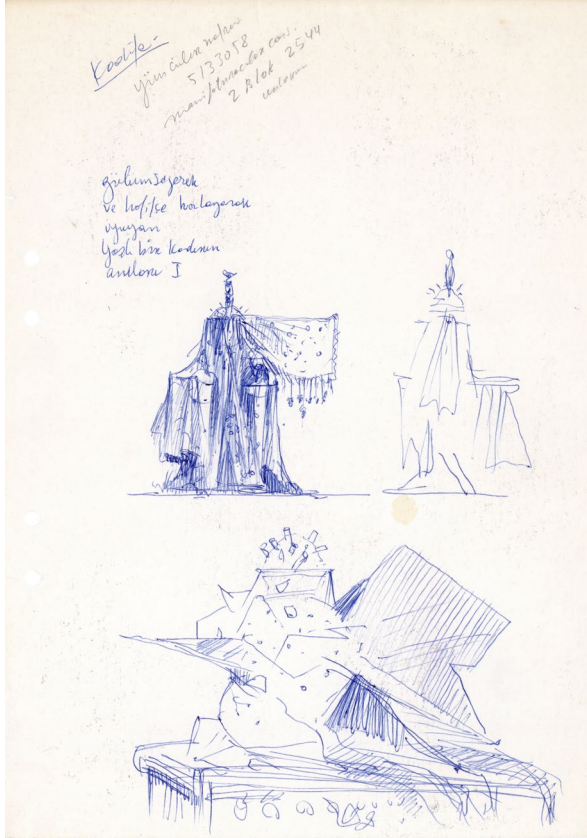 Kadife
yün çileler
5133058
manifaturacılar
2 Blok 2544
gülümseyerek
ve hafifçe horlayarak
uyuyan
yaşlı bir kadının
anıları I